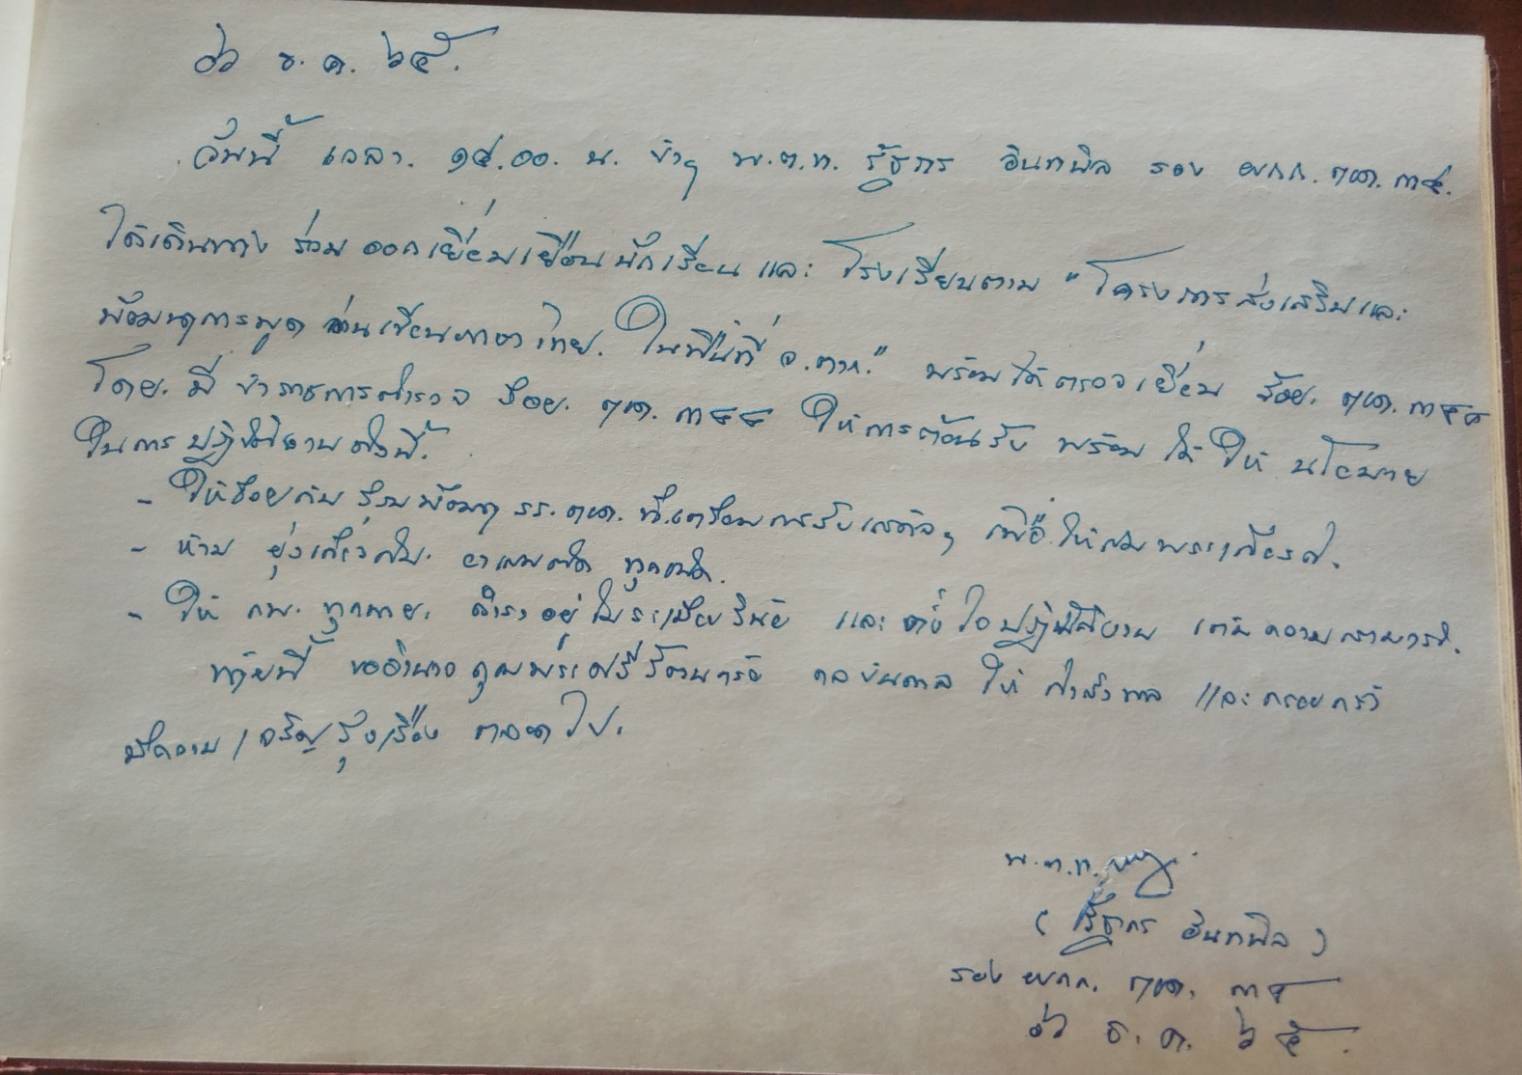 ๖ ธ.ค. ๖๕.
วันนี้ เวลา. ๑๔.๐๐. น. ข้าฯ พ.ต.ท. รัฐกร อินทพิล รอง ผกก. ตชด. ๓๔.
ได้เดินทาง ร่วม ออกเยี่ยมเยือนนักเรียน และ โรงเรียนตาม "โครงการส่งเสริมและ
พัฒนาการพูด อ่านเขียนภาษาไทย. ในพื้นที่ จ.ตาก." พร้อมได้ตรวจเยี่ยม ร้อย. ตชด. ๓๔๔
โดย. มี ข้าราชการตำรวจ ร้อย. ตชด. ๓๔๔ ให้การต้อนรับ พร้อม ได้ ให้ นโยบาย
ในการปฏิบัติงานดังนี้.
- ให้ช่วยกัน พัฒนา รร. ตชด. ที่เตรียมการรับเสด็จฯ เพื่อให้สมพระเกียรติ.
- ห้าม ยุ่งเกี่ยวกับ. ยาเสพติด ทุกชนิด.
- ให้ กพ. ทุกนาย. ดำรงอยู่ในระเบียบวินัย และ ตั้งใจปฏิบัติงาน เต็มความสามารถ.
ท้ายนี้ ขออำนาจคุณพระศรีรัตนตรัย ดลบันดาล ให้ กำลังพล และครอบครัว
มีความเจริญรุ่งเรือง ตลอดไป.
พ.ต.ท.
( รัฐกร อินทพิล )
รอง ผกก. ตชด. ๓๔
๖ ธ.ค. ๖๕.